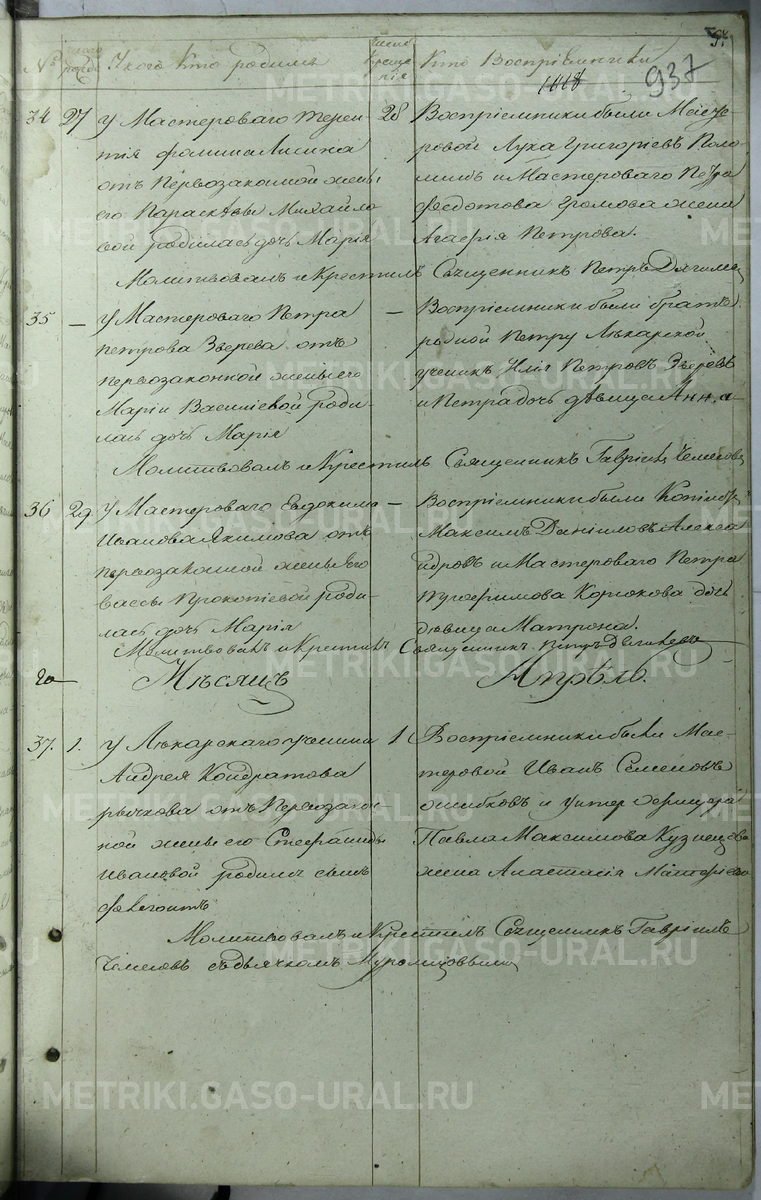 № Число родив. У кого кто родился Число крещенія Кто Воспріемники
1118 937
34 27 У Мастероваго Терен-
тія Фомина Лисина
отъ первозаконной жены
его Параскевы Михайло-
вой родилась дочь Марія
28 Воспріемники были Масте-
ровой Лука Григоріевъ
и Мастероваго Петра
Федотова Громова жена
Агафія Петрова.
Молитвовалъ и Крестилъ Священникъ Петръ Дягилевъ
35 — У Мастероваго Петра
петрова Зверева отъ
первозаконной жены его
Маріи Василіевой роди-
лась дочь Марія
— Воспріемники были братъ
родной Петру Лѣкарской
ученикъ Илія Петровъ Зверевъ
и Петра дочь дѣвица Анна
Молитвовалъ и Крестилъ Священникъ Гавріилъ
36 29 У Мастероваго Евдокима
Иванова Якимова отъ
первозаконной жены его
Вассы Прокопіевой роди-
лась дочь Марія
— Воспріемники были
Максимъ Даніиловъ Алекса-
ндровъ и Мастероваго Петра
Корюкова дочь
дѣвица Матрона.
Молитвовалъ и Крестилъ Священникъ Петръ Дягилевъ
Мѣсяцъ Апрѣль.
37. 1. У Лѣкарскаго ученика
Андрея Кондратова
рычкова отъ Первозакон-
ной жены его Стефаниды
Ивановой родился сынъ
1 Воспріемники были Мас-
теровой Иванъ Семеновъ
ошибковъ и унтер
Павла Максимова Кузнецова
жена Анастасія
Молитвовалъ и Крестилъ Священникъ Гавріилъ
съ дьячкомъ
METRIKI.GASO-URAL.RU